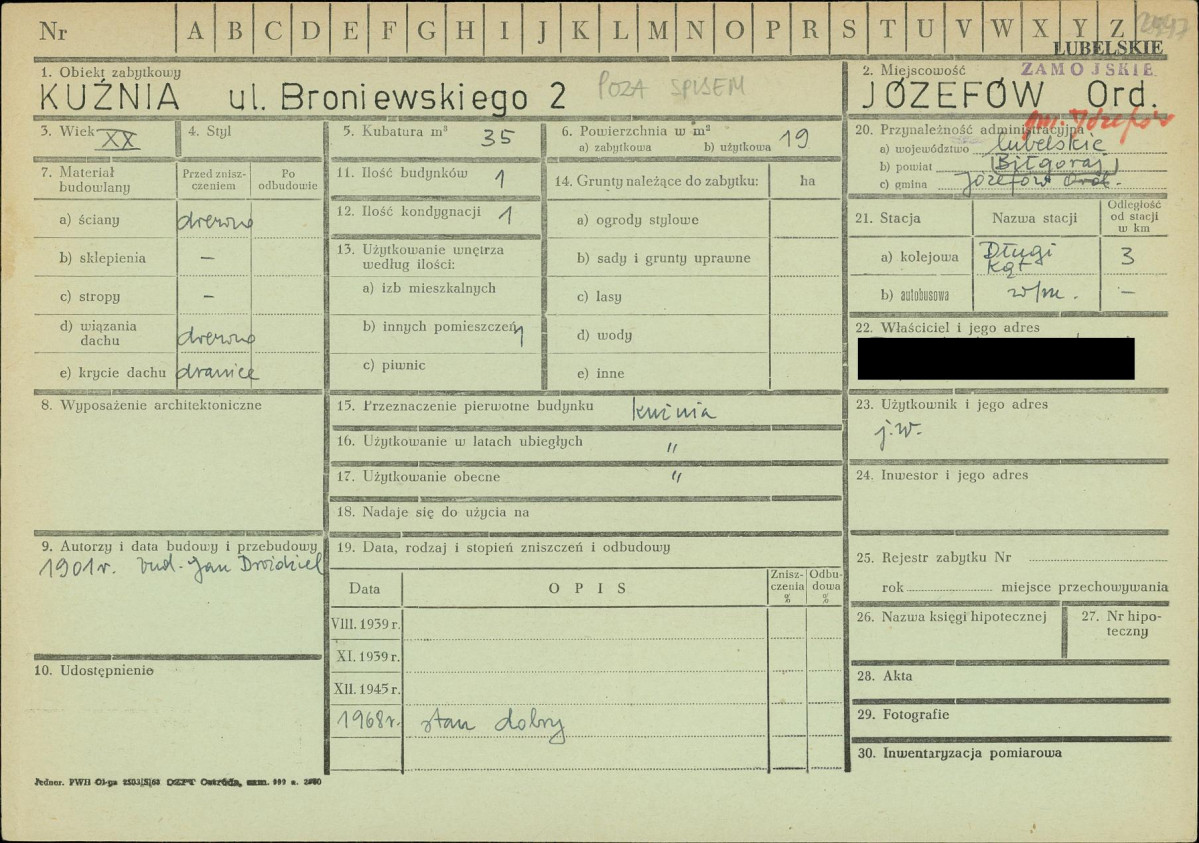 Nr A B C D E F G H I J K L M N O P R S T U V W X Y Z
LUBELSKIE
ZAMOJSKIE
1. Obiekt zabytkowy
KUŹNIA ul. Broniewskiego 2 POZA SPISEM
2. Miejscowość
JÓZEFÓW Ord.
gm. Józefów
3. Wiek XX
4. Styl
5. Kubatura m³ 35
6. Powierzchnia w m²
a) zabytkowa b) użytkowa 19
7. Materiał budowlany
Przed znisz-
czeniem
Po
odbudowie
a) ściany drewno
b) sklepienia –
c) stropy –
d) wiązania
dachu drewno
e) krycie dachu dranice
8. Wyposażenie architektoniczne
9. Autorzy i data budowy i przebudowy
1901 r. bud. Jan Droździel
10. Udostępnienie
11. Ilość budynków 1
12. Ilość kondygnacji 1
13. Użytkowanie wnętrza
według ilości:
a) izb mieszkalnych
b) innych pomieszczeń 1
c) piwnic
14. Grunty należące do zabytku: ha
a) ogrody stylowe
b) sady i grunty uprawne
c) lasy
d) wody
e) inne
15. Przeznaczenie pierwotne budynku kuźnia
16. Użytkowanie w latach ubiegłych "
17. Użytkowanie obecne "
18. Nadaje się do użycia na
19. Data, rodzaj i stopień zniszczeń i odbudowy
Data OPIS
Znisz-
czenia
%
Odbu-
dowa
%
VIII. 1939 r.
XI. 1939 r.
XII. 1945 r.
1968 r. stan dobry
20. Przynależność administracyjna
a) województwo lubelskie
b) powiat Biłgoraj
c) gmina Józefów Ord.
21. Stacja Nazwa stacji
Odległość
od stacji
w km
a) kolejowa Długi
Kąt 3
b) autobusowa w/m. –
22. Właściciel i jego adres
23. Użytkownik i jego adres
j.w.
24. Inwestor i jego adres
25. Rejestr zabytku Nr
rok miejsce przechowywania
26. Nazwa księgi hipotecznej
27. Nr hipo-
teczny
28. Akta
29. Fotografie
30. Inwentaryzacja pomiarowa